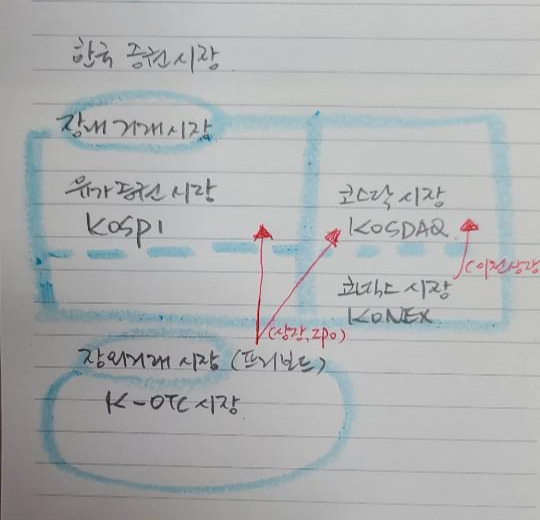 한국 증권시장
장내 거래시장
유가증권 시장
KOSPI
코스닥 시장
KOSDAQ
(이전상장
코넥스 시장
KONEX
(상장, IPO)
장외거래 시장 (프리보드)
K-OTC 시장